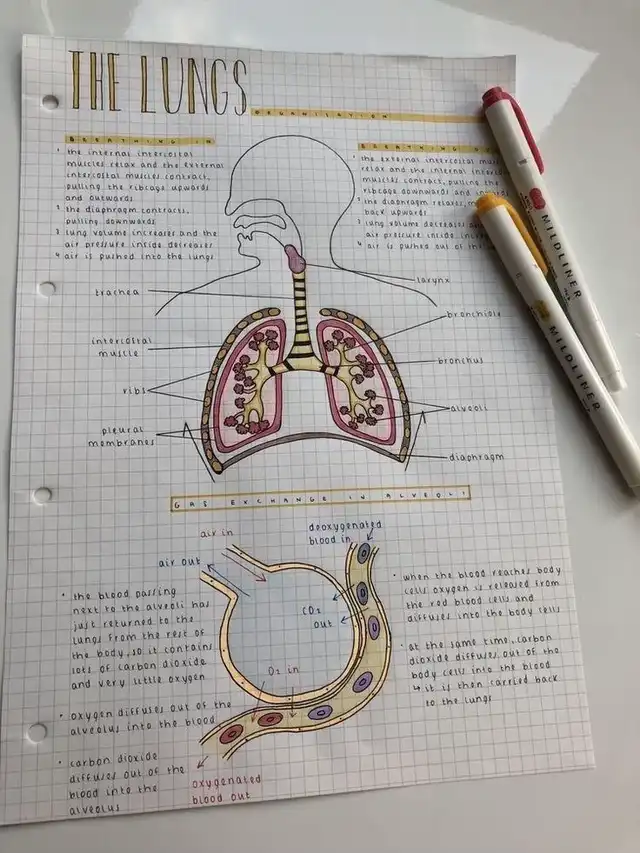 THE LUNGS
ORGANISATION
BREATHING IN
1 the internal intercostal
muscles relax and the external
intercostal muscles contract,
pulling the ribcage upwards
and outwards
2 the diaphragm contracts,
pulling downwards
3 lung volume increases and the
air pressure inside decreases
4 air is pushed into the lungs
BREATHING
1 the external intercostal
relax and the internal
muscles contract, pulling the
ribcage downwards and
2 the diaphragm relaxes,
back upwards
3 lung volume decreases
air pressure inside
4 air is pushed out of the
trachea
intercostal
muscle
ribs
pleural
membranes
larynx
bronchiole
bronchus
alveoli
diaphragm
GAS EXCHANGE IN ALVEOLI
air in
air out
deoxygenated
blood in
CO2
out
O2 in
oxygenated
blood out
• the blood passing
next to the alveoli has
just returned to the
lungs from the rest of
the body, so it contains
lots of carbon dioxide
and very little oxygen
• oxygen diffuses out of the
alveolus into the blood
• carbon dioxide
diffuses out of the
blood into the
alveolus
• when the blood reaches body
cells oxygen is released from
the red blood cells and
diffuses into the body cells
• at the same time, carbon
dioxide diffuses out of the
body cells into the blood
↳ it is then carried back
to the lungs
MILDLINER
MILDLINER